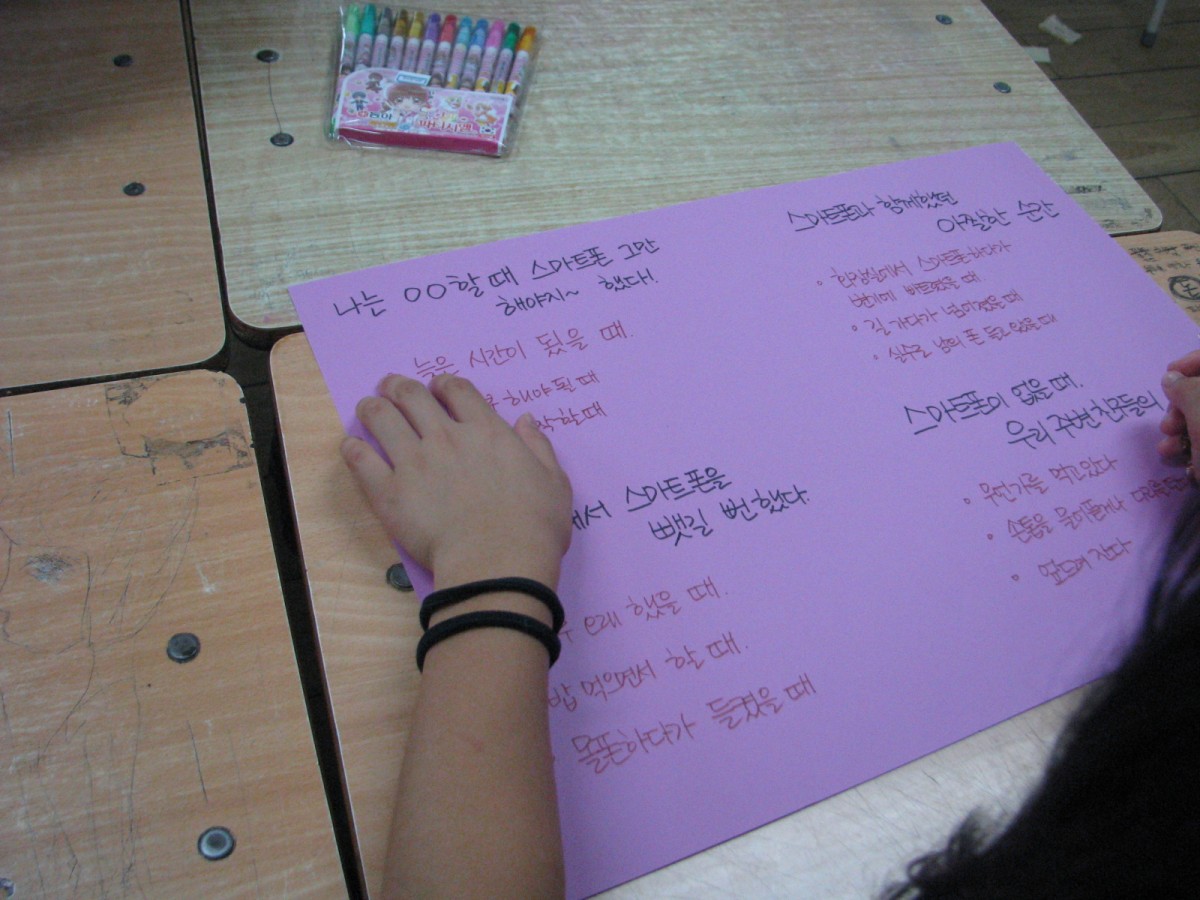 나는 OO할 때 스마트폰 그만
해야지~ 했다!
늦은 시간이 됬을 때.
해야 될 때
할 때
에서 스마트폰을
뺏길 뻔 했다.
래 했을 때.
밥 먹으면서 할 때.
몰폰하다가 들켰을 때
스마트폰과 함께했던
아찔한 순간
• 화장실에서 스마트폰하다가
변기에 빠트렸을 때
• 길 가다가 넘어졌을 때
• 실수로 남의 폰 들고 있을 때
스마트폰이 없을 때.
우리 주변 친구들의
• 무언가를 먹고 있다
• 손톱을 물어뜯거나
• 엎드려 잔다